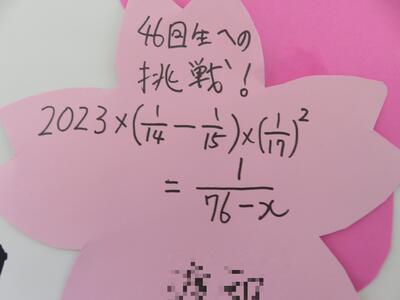 46回生への
挑戦!
2023×(1/14－1/15)×(1/17)²
＝1/(76－x)